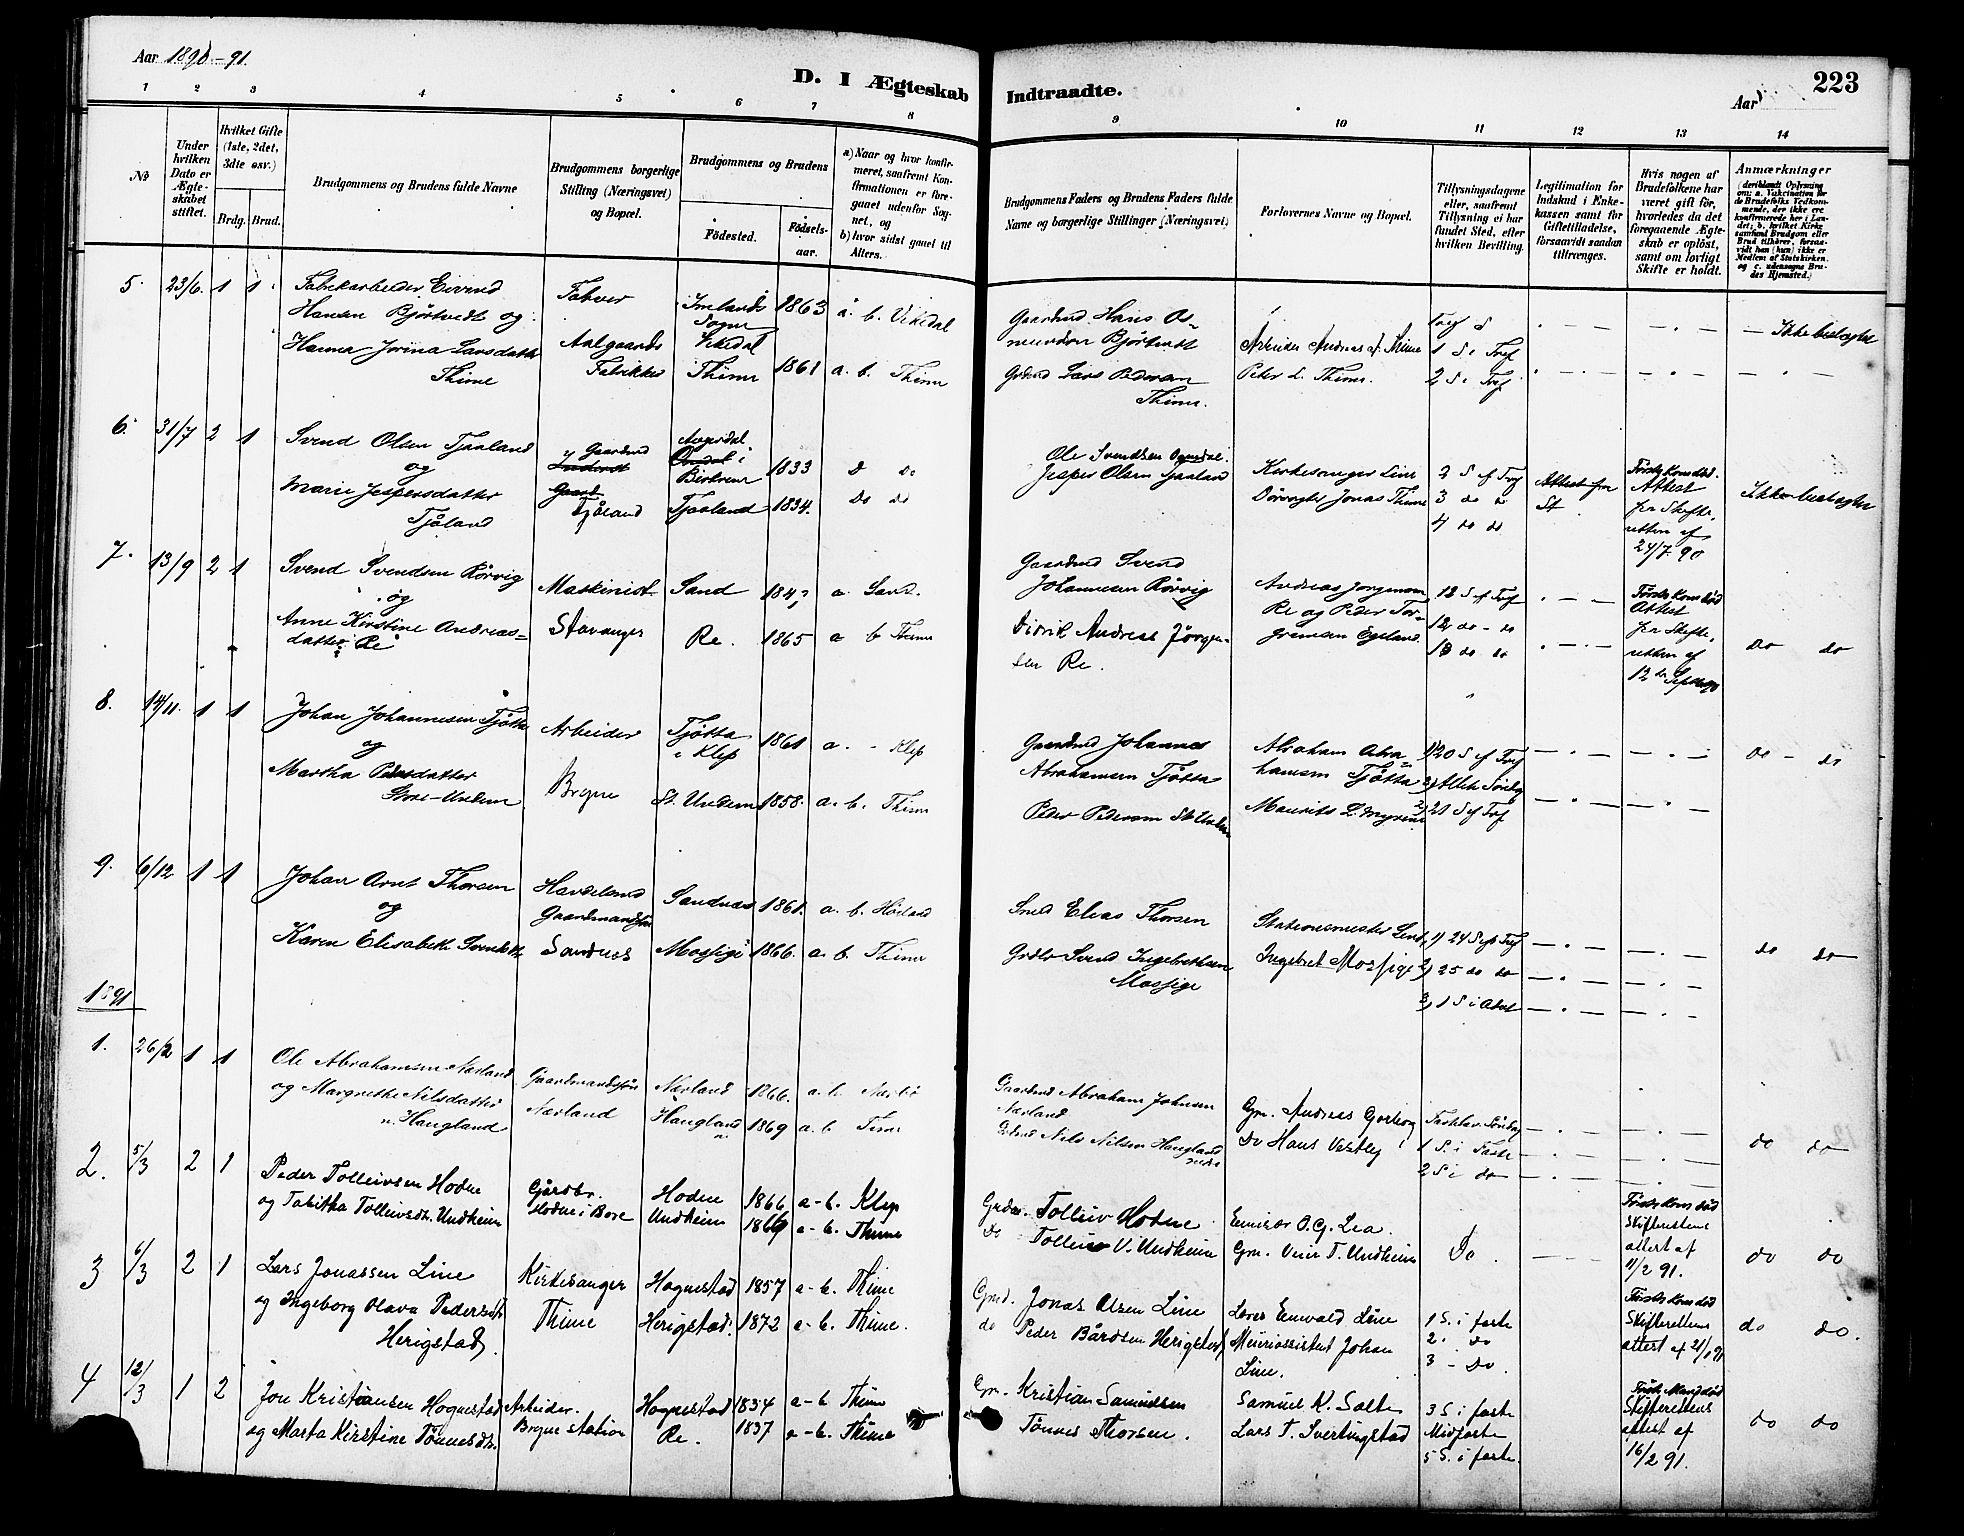 Aar 1890-91.
D. I Ægteskab Indtraadte.
Aar
223
1 2 3 4 5 6 7 8 9 10 11 12 13 14
No
Under hvilken Dato er Ægteskabet stiftet.
Hvilket Gifte (1ste, 2det, 3die osv.)
Brdg. Brud.
Brudgommens og Brudens fulde Navne
Brudgommens borgerlige Stilling (Næringsvei) og Bopæl.
Brudgommens og Brudens
Fødested.
Fødselsaar.
a) Naar og hvor konfirmeret, saafremt Konfirmationen er foregaaet udenfor Sognet, og
b) hvor sidst gaaet til Alters.
Brudgommens Faders og Brudens Faders fulde Navne og borgerlige Stillinger (Næringsvei)
Forlovernes Navne og Bopæl.
Tillysningsdagene eller, saafremt Tillysning ei har fundet Sted, efter hvilken Bevilling.
Legitimation for Indskud i Enkekassen samt for Giftetilladelse, forsaavidt saadan tiltrænges.
Hvis nogen af Brudefolkene har været gift før, hvorledes da det foregaaende Ægteskab er opløst, samt om lovligt Skifte er holdt.
Anmærkninger
(deriblandt Oplysning om: a. Vakcination for de Brudefolks Vedkommende, der ikke ere konfirmerede her i Landet; b. hvilket Kirkesamfund Brudgom eller Brud tilhører, forsaavidt han (hun) ikke er Medlem af Statskirken, og c. udensogns Brudes Hjemsted.)
5. 23/6. 1 1 Fabrikarbeider Eivind
Hansen Bjørtvedt og
Hanna Jorina Larsdatter
Thime
Aalgaards
Fabrikker
Imslands
Sogn
Vikedal
Thime
1863
1861
a. b. Vikedal
a. b. Thime
Gaardmd Hans
Bjørtvedt
Grdmd Lars Pedersen
Thime.
Arbeider Andreas Thime
Peter L. Thime.
1 S. i Tref
2 S. i Tref
Ikke beslægtet
6. 31/7 2 1 Svend Olsen Tjaaland
og
Marie Jespersdatter
Tjåland
Gaardmd
Tjåland
i
Birkrem
Tjaaland
1833
1834.
do do
Ole Svendsen
Jesper Olsen Tjaaland
Kirkesanger Line
Jonas Thime
2 S. ef Tref
3 do do
4 do do
Attest fra
Første Kone død.
Attest
fra Skifteretten af
24/7 90
Ikke beslægtet
7. 13/9 2 1 Svend Svendsen Rørvig
og
Anne Kirstine Andreasdatter Re
Maskinist
Stavanger
Sand
Re.
1865
a Sand.
a b Thime
Gaardmd Svend
Johannesen Rørvig
Didrik Andreas Jørgensen Re.
Andreas Jørgensen
Re og Peder Torgersen
12 S. ef Tref
12 do - do
13 do do
Første Kone død
Attest
fra Skifteretten af
12 de Septbr 90
do do
8. 14/11. 1 1 Johan Johannesen Tjøtta
og
Martha Pedersdatter
Store-Undem
Arbeider
Bryne
Tjøtta
i Klep
St. Undem
1861
1858.
a. - Klep
a. b. Thime
Gaardmd Johannes
Abrahamsen Tjøtta
Peder Pedersen St Undem
Abraham Abrahamsen Tjøtta
Maurits L. Myren
20 S ef Tref
Alleh. Søndag
21 S ef Tref
do - do
9. 6/12 1 1 Johan Arnt Thorsen
og
Karen Elisabeth Svendsdtr
Handelsmd
Gaardmandssøn
Sandnes
Sandnes
Mossige
1861.
1866.
a. b. Høiland
a. b. Thime
Smed Elias Thorsen
Grdbr Svend Ingebretsen
Mossige
Stationsmester Lind
Ingebret Mossige
1) 24 S. ef Tref
2) 25 do do
3) 1 S i Advt
do do
1891
1. 26/2 1 1 Ole Abrahamsen Nærland
og Margrethe Nilsdatter
n. Haugland
Gaardmandssøn
Nærland
Nærland
Haugland n.
1866.
1869
a. b. Nærbø
a. b Time
Gaardmd Abraham Johnsen
Nærland
Grdmd Nils Nilsen Haugland
nedre
Gm. Andreas
do Hans Vestly
Fastelav. Søndag
1 S. i Faste
2 S. i do
do do
2. 5/3 2 1 Peder Tolleivsen Hodne
og Tabitha Tolleivsdr. Undheim
Gårdbr.
Hodne i Bore
Hodne
Undheim
1866
1869
a-b. Klep
a-b. Thime
Grdbr. Tolleiv Hodne
do Tolleiv V. Undheim
Emissær O. G. Lea.
Gm. Veier T. Undheim
Do.
Første Kone død
Skifterettens
attest af
11/2 91.
do do
3 6/3 2 1 Lars Jonassen Line
og Ingeborg Olava Pedersdt.
Herigstad.
Kirkesanger
Thime
Hognestad
Herigstad.
1857
1872
a-b. Thime
a-b. Thime.
Gmd. Jonas Olsen Line
do Peder Bårdsen Herigstad
Lærer Enevald Line
Meieriassistent Johan
Line.
1 S. i faste
2. do
3 - Do.
Første Kone død
Skifterettens
attest af 21/1 91
do do.
4 12/3 1 2 Jon Kristiansen Hognestad
og Marta Kirstine Tønnesdr.
Arbeider.
Bryne station
Hognestad
Re.
1834
1837
a-b Thime
a-b. Thime
Gm. Kristian Samuelsen
Tønnes Thorsen.
Samuel K. Salte
Lars T. Svertingstad
3 S. i faste
Midfaste
5 S. i faste
Første Mand død
Skifterettens
attest af
16/2 91.
do do